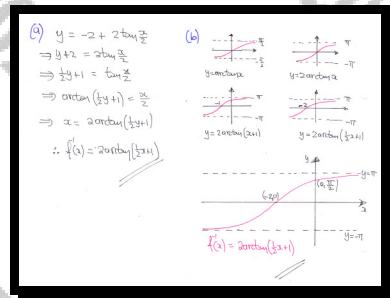 (a) y = -2 + 2tan x/2
⇒ y+2 = 2tan x/2
⇒ ½y+1 = tan x/2
⇒ arctan(½y+1) = x/2
⇒ x = 2arctan(½y+1)
∴ f⁻¹(x) = 2arctan(½x+1)
(b)
π/2
-π/2
y=arctanx
π
-π
y=2arctanx
π
-1
-π
y=2arctan(x+1)
π
-2
-π
y=2arctan(½x+1)
y
y=π
(0, π/2)
(-2,0)
x
y=-π
f⁻¹(x) = 2arctan(½x+1)